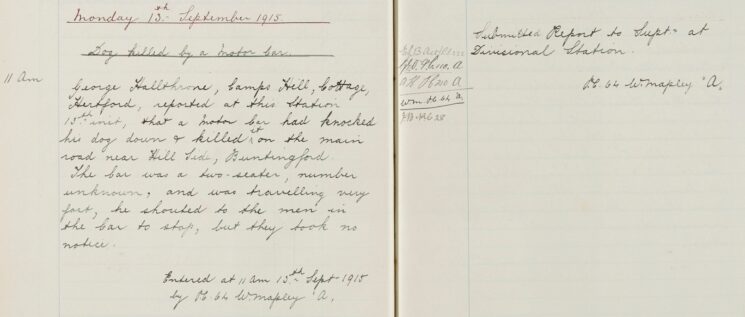 Monday 13th September 1915.
Dog killed by a Motor Car.
11 Am
George Hallthrone, Camps Hill, Cottage,
Hertford, reported at this Station
13th inst, that a Motor Car had knocked
his dog down & killed it on the main
road near Hill Side, Buntingford.
The Car was a two-seater, number
unknown, and was travelling very
fast, he shouted to the men in
the Car to stop, but they took no
notice.
Entered at 11 am 13th Sept 1915
by P.C. 64 W. Mapley "A,
A
A
Wm PC 64 A
Submitted Report to Supt at
Divisional Station.
P.C. 64 W. Mapley "A,